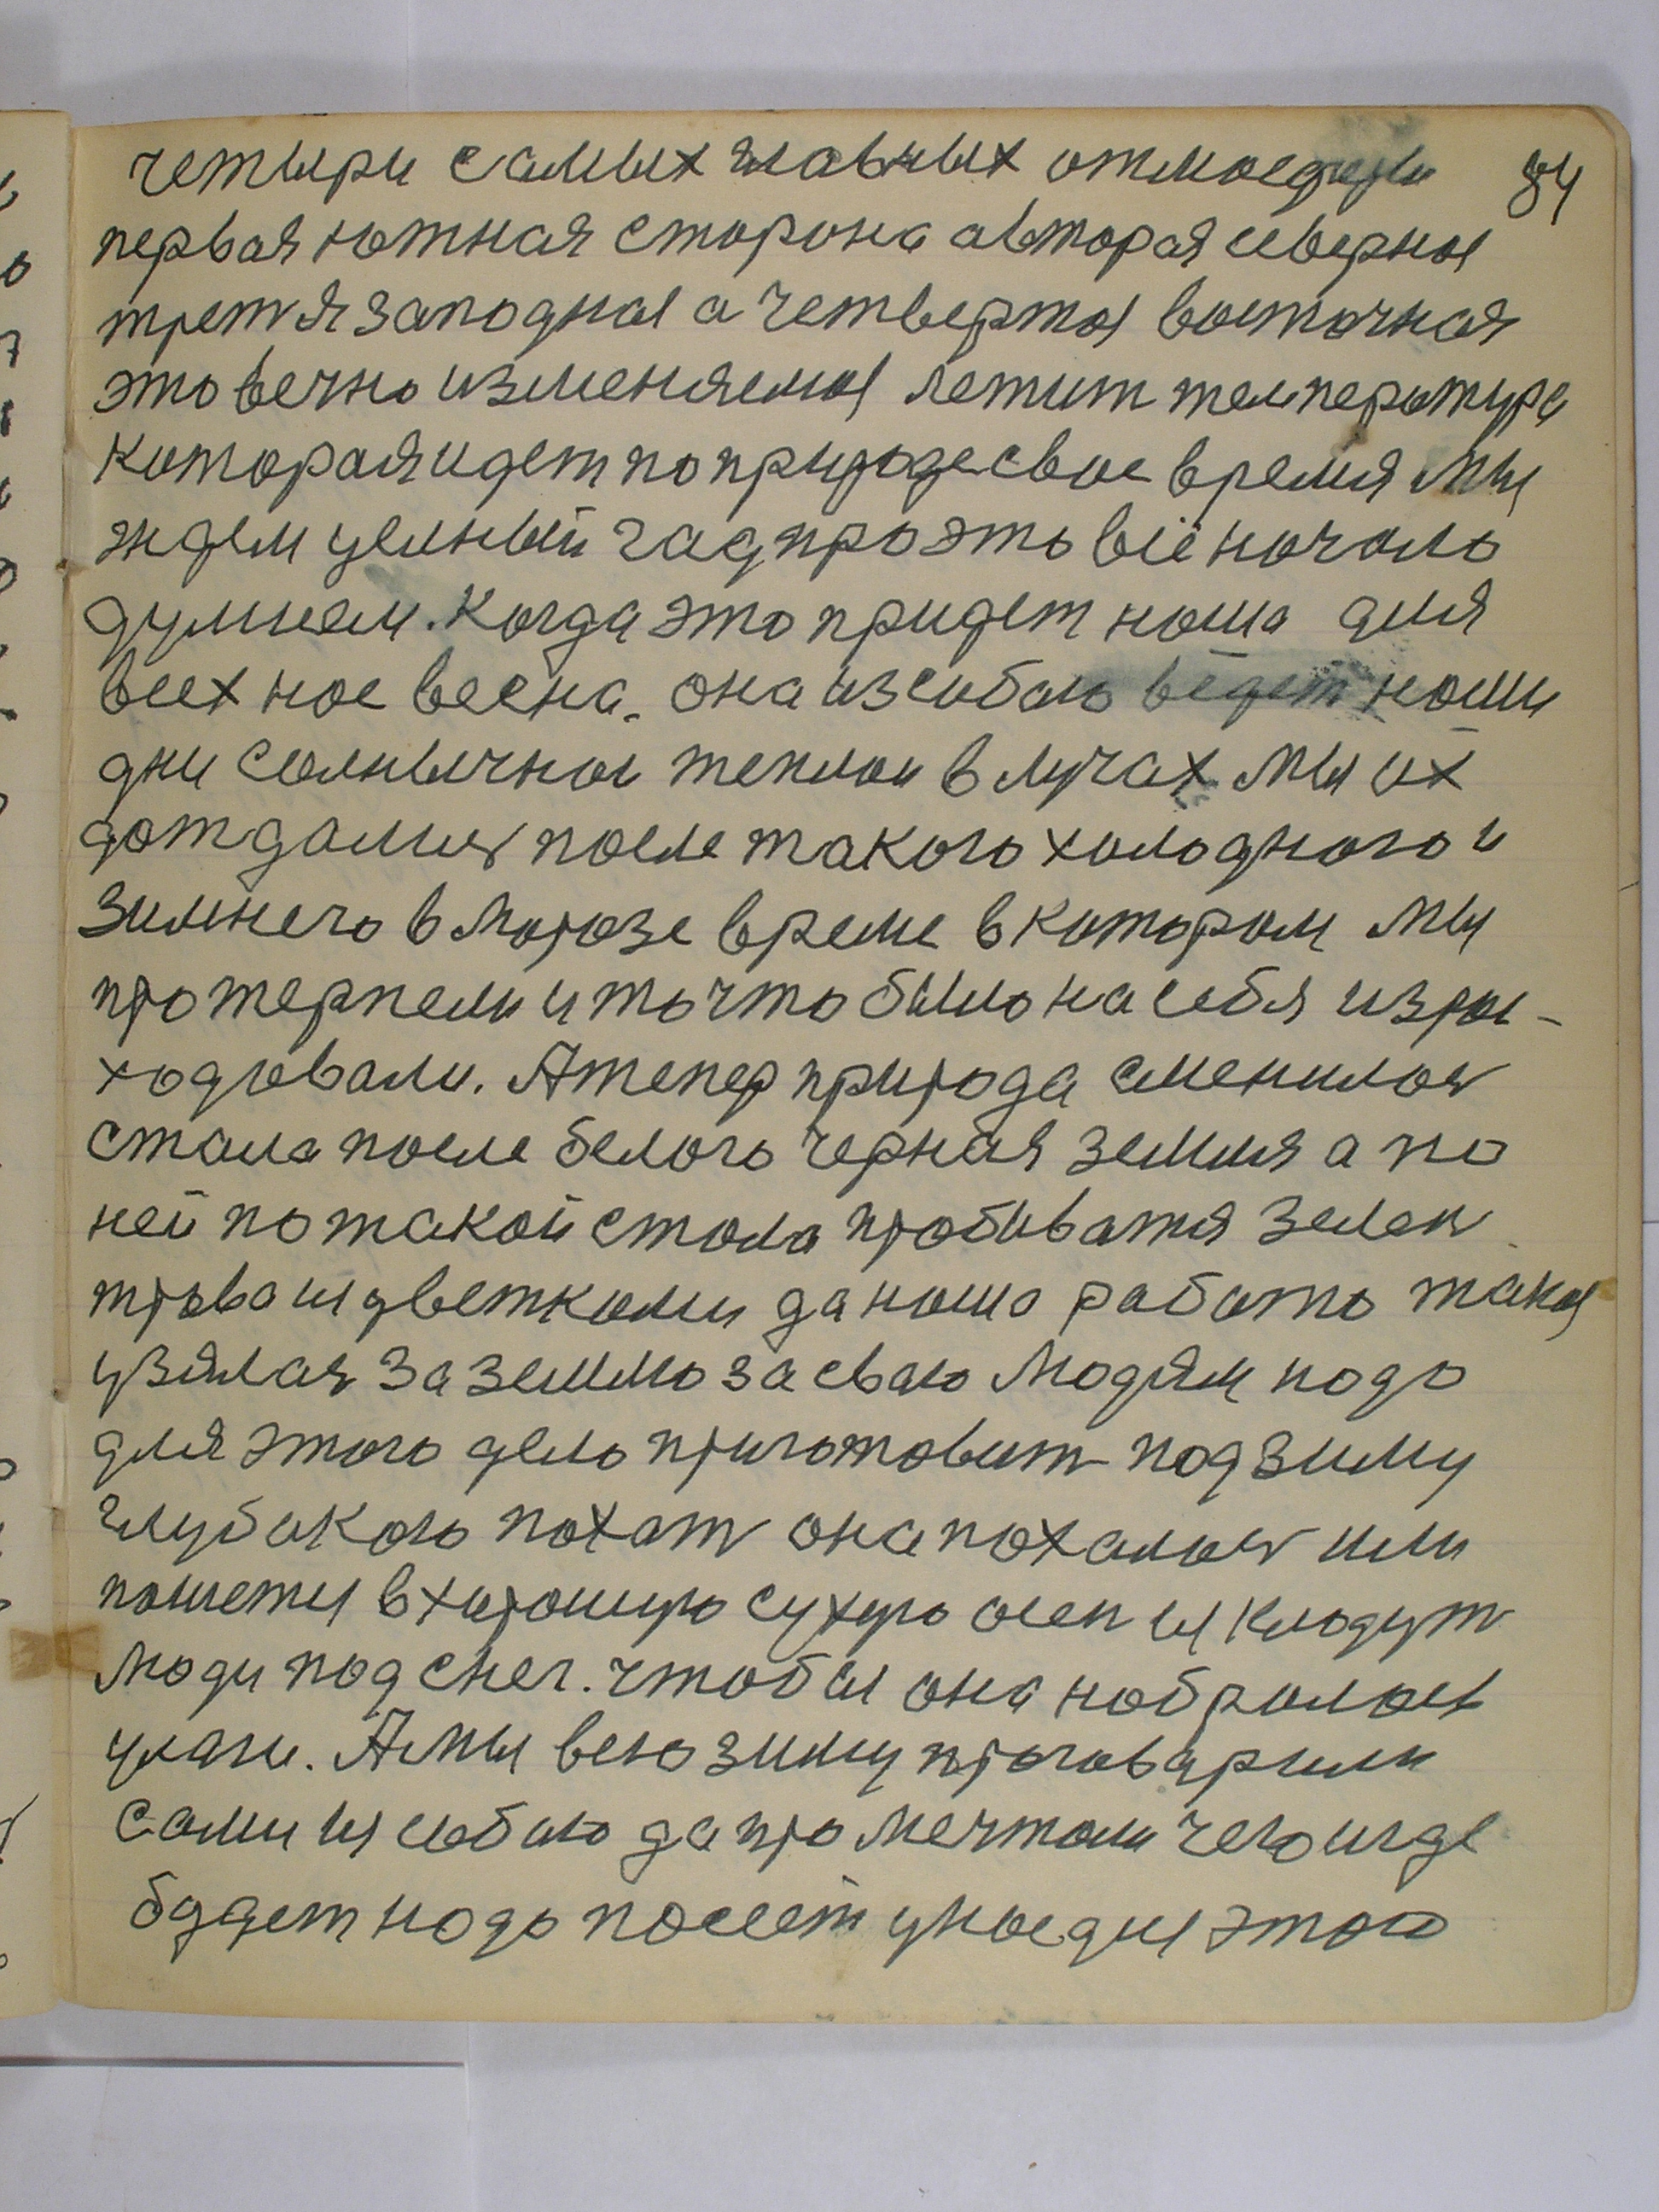 четыри самых главных атмосфери 84
первая южная сторона авторая северная
третя западная а четвертоя восточная
это вечно изменяемая летит температура
которая идет по природе свое время Мы
ждем целный час про это всё начало
думаем. Когда это придет наша для
всех нас весна. она из собою ведет наши
дни солнычнои теплои в лучах Мы их
дождались после такого холодного и
зимнего в морозе време в котором Мы
протерпели и то что было на себя изрос-
ходовали. А тепер природа сменилас
стала после белого черная земля а по
ней по такой стала пробиватя зелен
трава и цветками да наша работа такая
узялас за землю за сваю Людям надо
для этого дела приготовит под зиму
глубакого пахат она пахалас или
пашется в хорошую сухую осен и кладут
люди под снег. чтобы она набралась
улаги. А мы всю зиму проговарили
сами и собаю да про мечтали чего и где
будет надо посеет у нас для этого